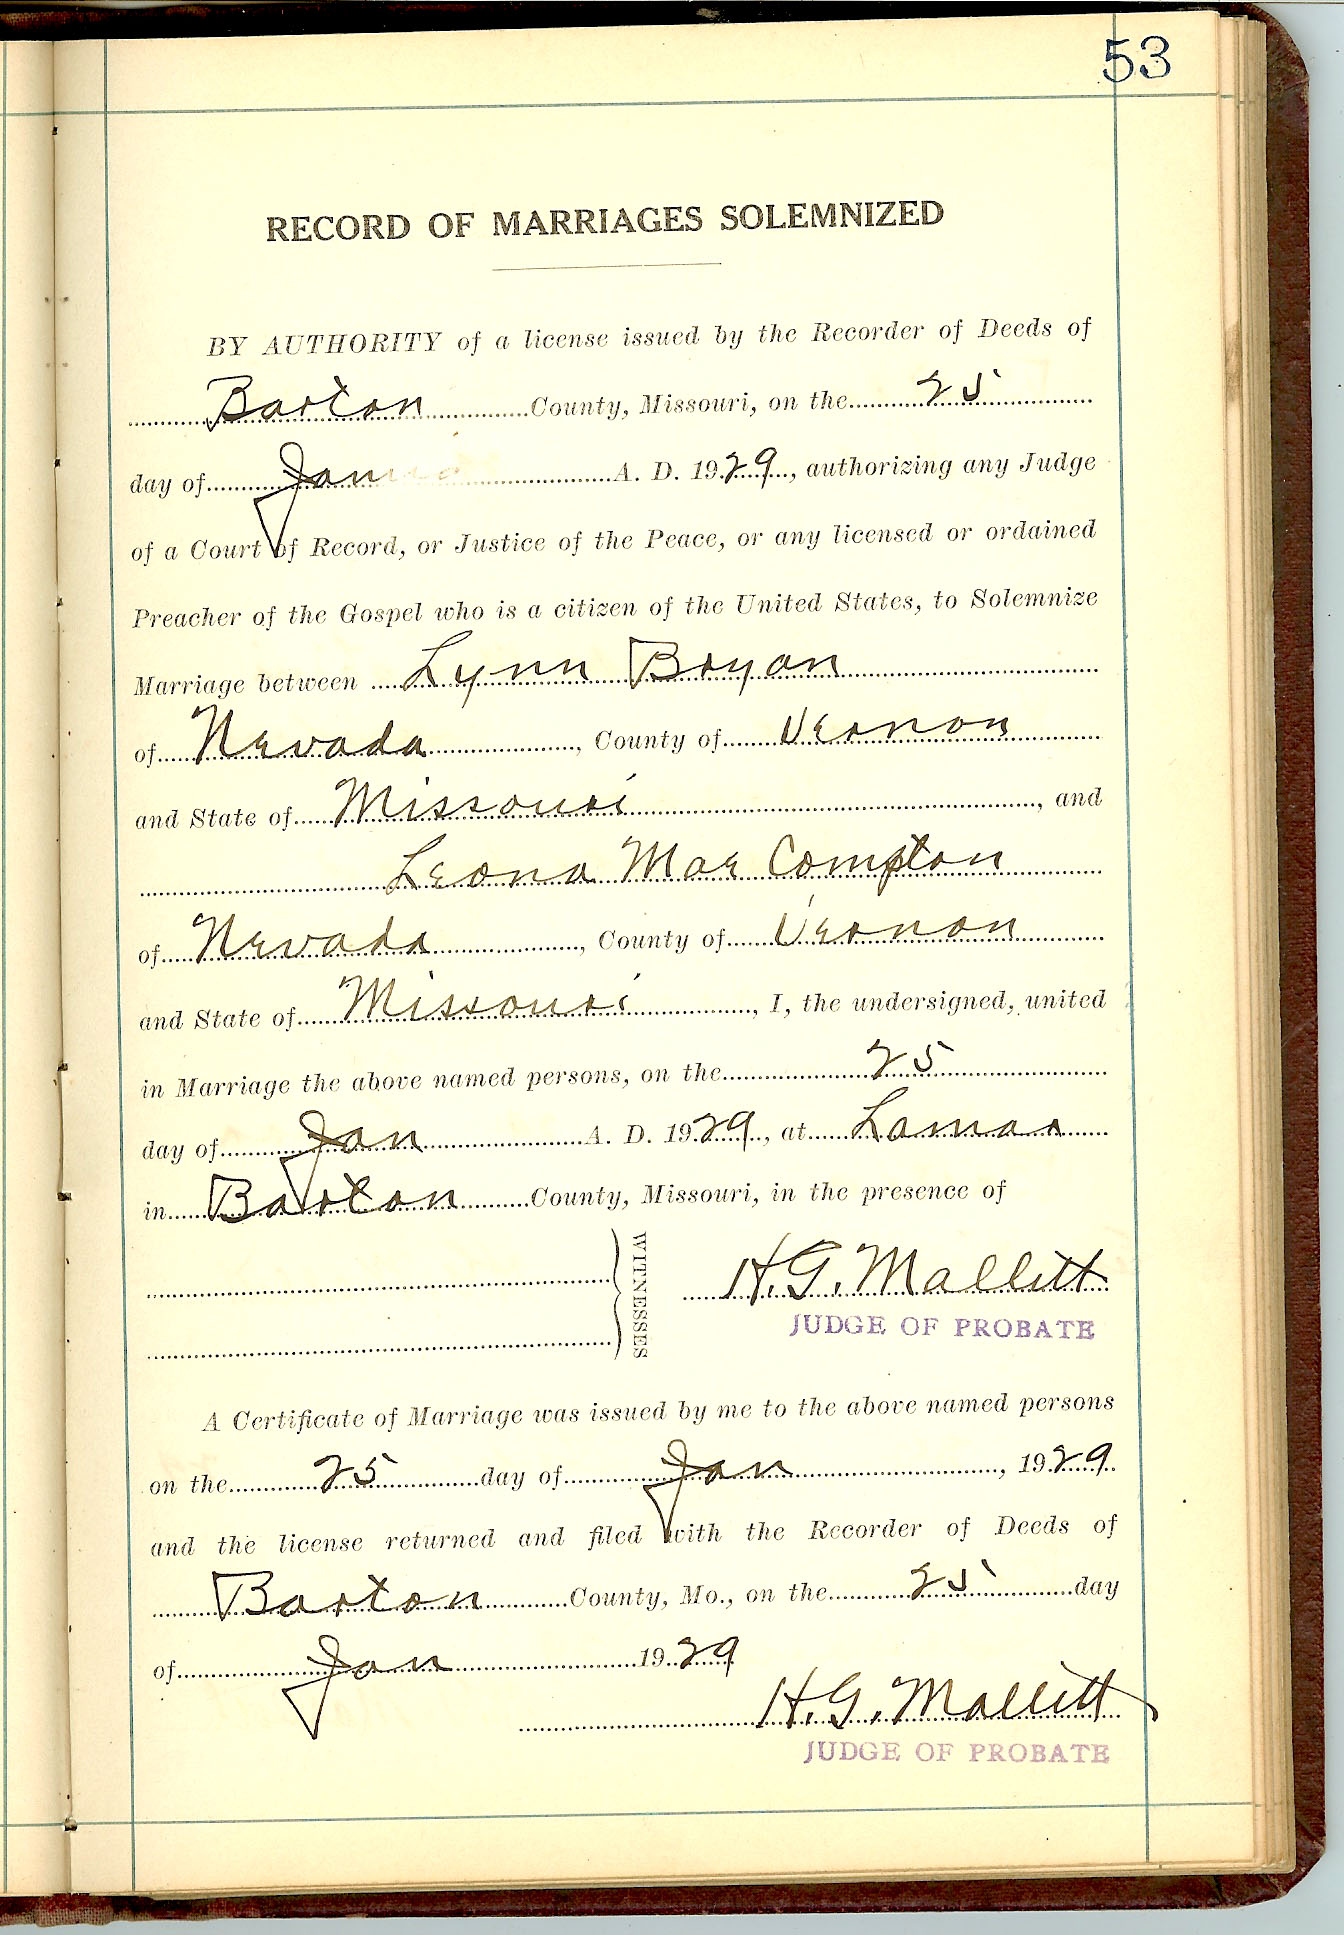 53
RECORD OF MARRIAGES SOLEMNIZED
BY AUTHORITY of a license issued by the Recorder of Deeds of
Barton County, Missouri, on the 25
day of Jan A. D. 1929, authorizing any Judge
of a Court of Record, or Justice of the Peace, or any licensed or ordained
Preacher of the Gospel who is a citizen of the United States, to Solemnize
Marriage between Lynn Bryan
of Nevada, County of Vernon
and State of Missouri, and
Leona Mae Compton
of Nevada, County of Vernon
and State of Missouri, I, the undersigned, united
in Marriage the above named persons, on the 25
day of Jan A. D. 1929, at Lamar
in Barton County, Missouri, in the presence of
WITNESSES
H. G. Mallitt
JUDGE OF PROBATE
A Certificate of Marriage was issued by me to the above named persons
on the 25 day of Jan, 1929
and the license returned and filed with the Recorder of Deeds of
Barton County, Mo., on the 25 day
of Jan 1929
H. G. Mallitt
JUDGE OF PROBATE